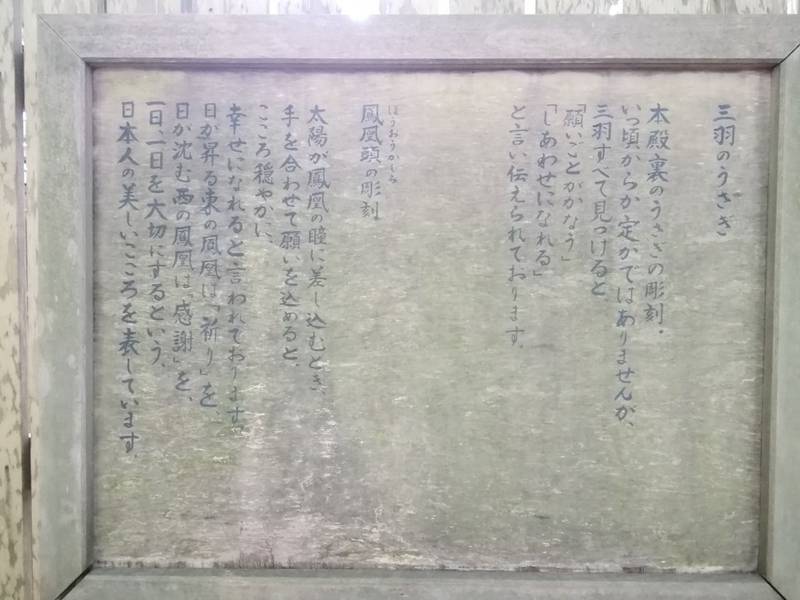 三羽のうさぎ
本殿裏のうさぎの彫刻・
いつ頃からか定かではありませんが、
三羽すべて見つけると
「願いごとがかなう」
「しあわせになれる」
と言い伝えられております。
ほうおうかしら
鳳凰頭の彫刻
太陽が鳳凰の瞳に差し込むとき、
手を合わせて願いを込めると、
こころ穏やかに、
幸せになれると言われております。
日が昇る東の鳳凰は「祈り」を、
日が沈む西の鳳凰は「感謝」を、
一日、一日を大切にするという、
日本人の美しいこころを表しています。